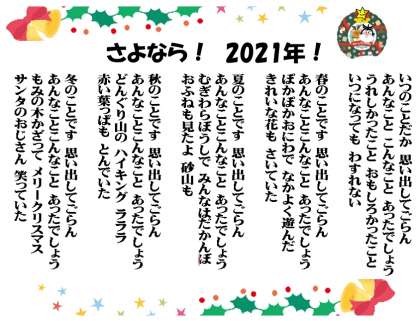 さよなら！ 2021年！
いつのことだか 思い出してごらん
あんなこと こんなこと あったでしょう
うれしかったこと おもしろかったこと
いつになっても わすれない
春のことです 思い出してごらん
あんなことこんなこと あったでしょう
ぽかぽかおにわで なかよく遊んだ
きれいな花も さいていた
夏のことです 思い出してごらん
あんなことこんなこと あったでしょう
むぎわらぼうしで みんなはだかんぼ
おふねも見たよ 砂山も
秋のことです 思い出してごらん
あんなことこんなこと あったでしょう
どんぐり山の ハイキング ラララ
赤い葉っぱも とんでいた
冬のことです 思い出してごらん
あんなことこんなこと あったでしょう
もみの木かざって メリークリスマス
サンタのおじさん 笑っていた